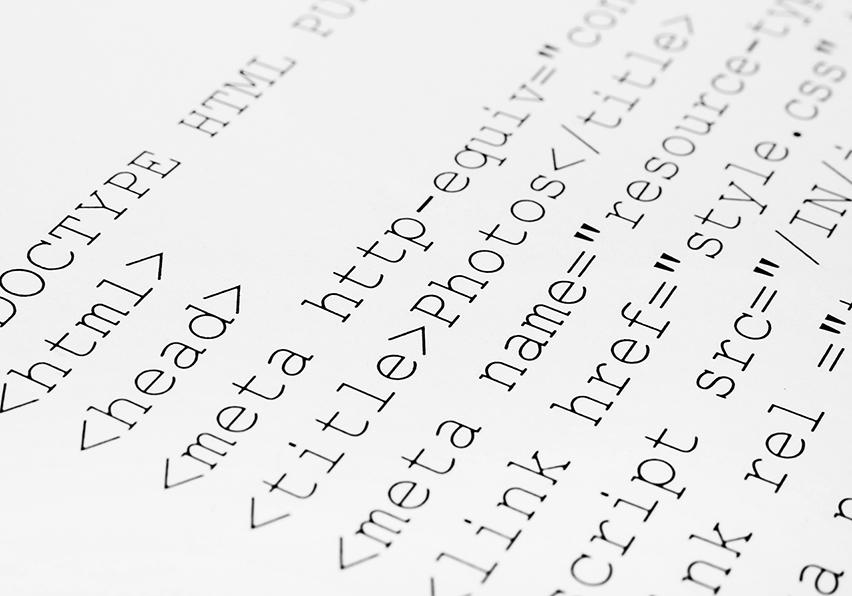 DOCTYPE HTML
<html>
<head>
<meta http-equiv="con
<title>Photos</title>
<meta name="resource-typ
<link href="style.css"
cript src="/IN/
nk rel ="
a n